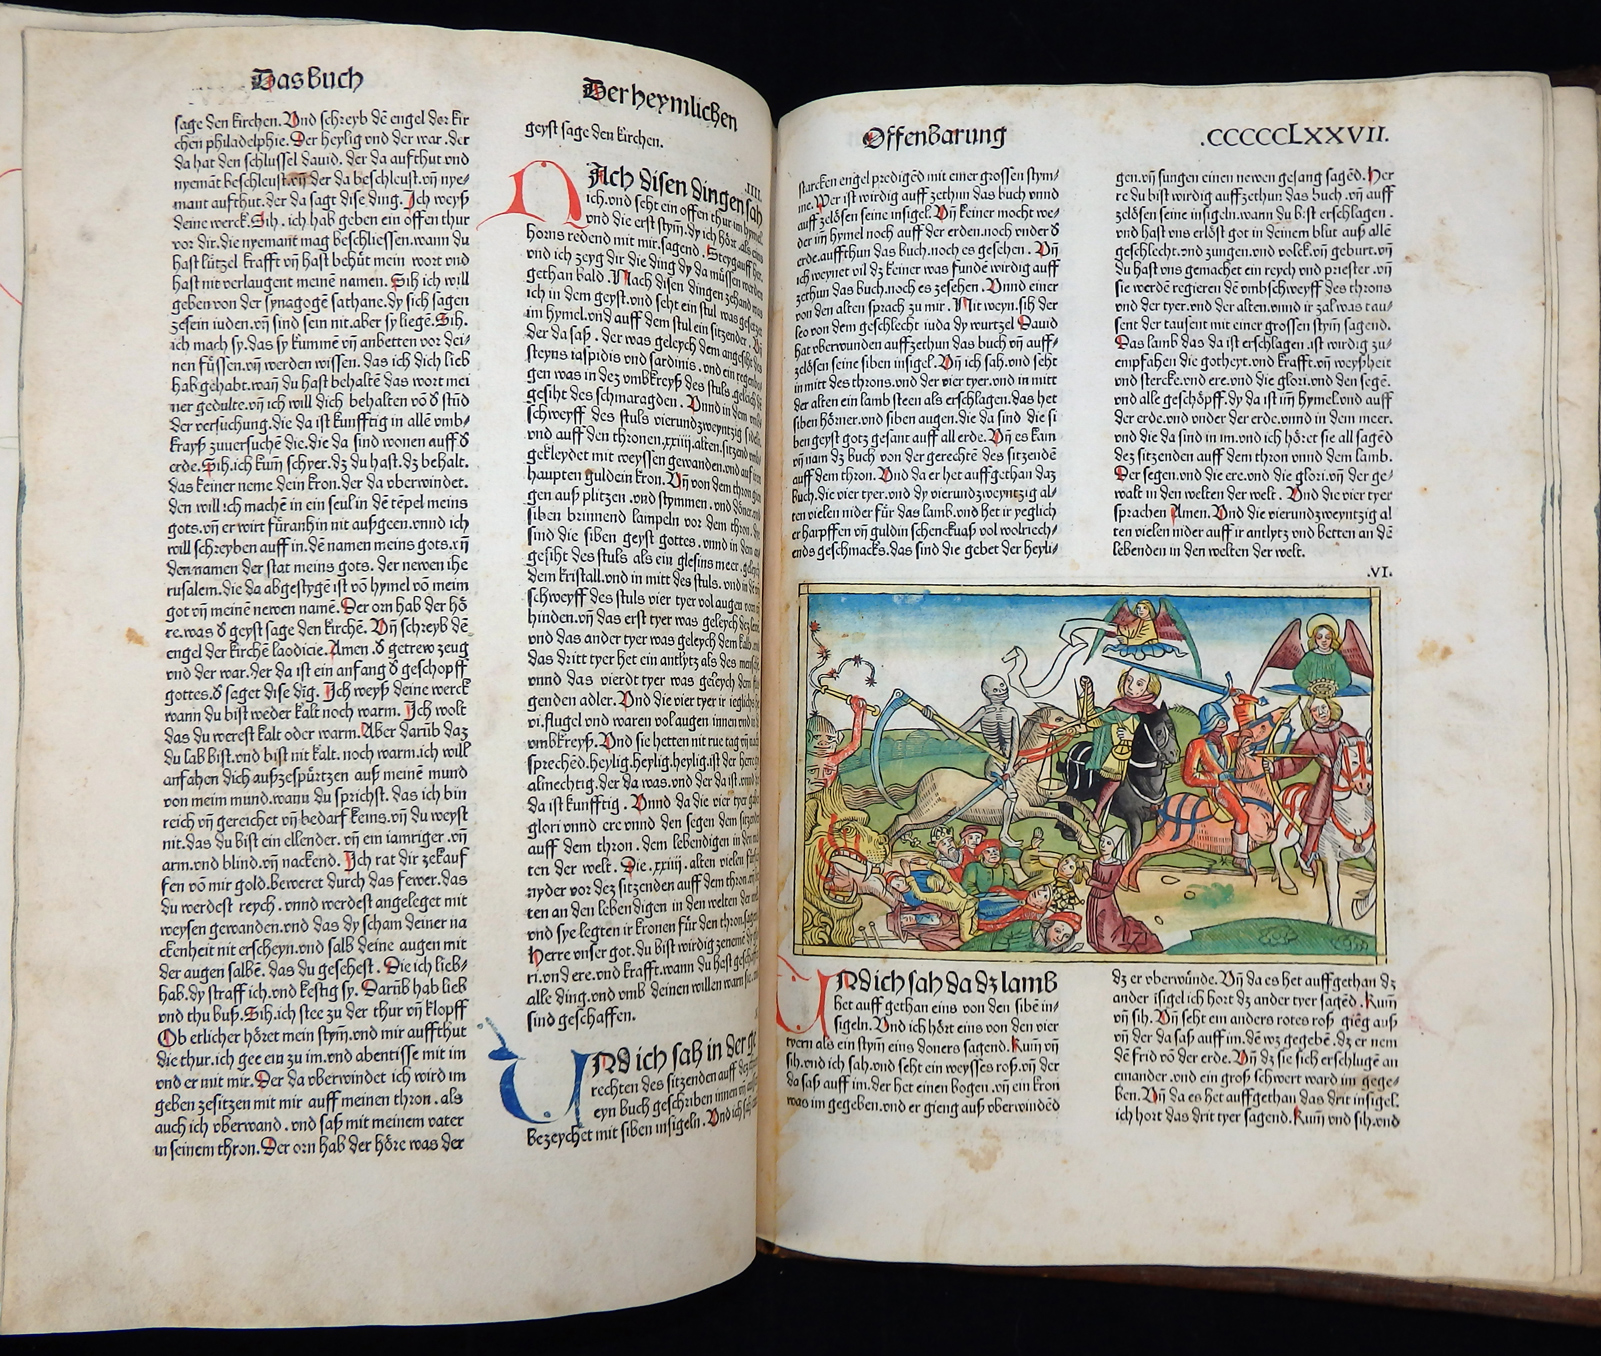 Das Buch
sage den kirchen. Vnd schreyb dē engel der kir
chen philadelphie. Der heylig vnd der war. der
da hat den schlussel dauid. der da aufthut vnd
nyemāt beschleust. vn̄ der da beschleust. vn̄ nye⸗
mant aufthut. der da sagt dise ding. Ich weyß
deine werck. Sih. ich hab geben ein offen thur
vor dir. die nyemant mag beschliessen. wann du
hast lützel krafft vn̄ hast behüt mein wort vnd
hast nit verlaugent meinē namen. Sih ich will
geben von der synagogē sathane. dy sich sagen
zesein iuden. vn̄ sind sein nit. aber sy liegē. Sih.
ich mach sy. das sy kummē vn̄ anbetten vor dei⸗
nen füssen. vn̄ werden wissen. das ich dich lieb
hab gehabt. wan̄ du hast behaltē das wort mei
ner gedulte. vn̄ ich will dich behalten vō d̕ stūd
der versuchung. die da ist kunfftig in allē vmb⸗
krayß zuuersuchē die. die da sind wonen auff d̕
erde. Sih. ich kum̄ schyer. dz du hast. dz behalt.
das keiner neme dein kron. der da vberwindet.
den will ich machē in ein seul in dē tēpel meins
gots. vn̄ er wirt füranhin nit außgeen. vnnd ich
will schreyben auff in. dē namen meins gots. vn̄
den namen der stat meins gots. der newen ihe
rusalem. die da abgestygē ist vō hymel vō meim
got vn̄ meinē newen namē. Der orn hab der hö
re. was d̕ geyst sage den kirchē. Vn̄ schreyb dē
engel der kirchē laodicie. Amen. d̕ getrew zeug
vnd der war. der da ist ein anfang d̕ geschopff
gottes. d̕ saget dise dig. Ich weyß deine werck
wann du bist weder kalt noch warm. Ich wolt
das du werest kalt oder warm. Aber darūb daz
du lab bist. vnd bist nit kalt. noch warm. ich will
anfahen dich außzespürtzen auß meinē mund
von meim mund. wanu du sprichst. das ich bin
reich vn̄ gereichet vn̄ bedarf keins. vn̄ du weyst
nit. das du bist ein ellender. vn̄ ein iamriger. vn̄
arm. vnd blind. vn̄ nackend. Ich rat dir zekauf
fen vō mir gold. beweret durch das fewer. das
du werdest reych. vnnd werdest angeleget mit
weysen gewanden. vnd das dy scham deiner na
ckenheit nit erscheyn. vnd salb deine augen mit
der augen salbē. das du gesehest. Die ich lieb⸗
hab. dy straff ich. vnd kestig sy. Darūb hab lieb
vnd thu buß. Sih. ich stee zu der thur vn̄ klopff
Ob etlicher höret mein stym̄. vnd mir auffthut
die thur. ich gee ein zu im. vnd abentisse mit im
vnd er mit mir. Der da vberwindet ich wird im
geben zesitzen mit mir auff meinen thron. als
auch ich vberwand. vnd saß mit meinem vater
in seinem thron. Der orn hab der höre was der
Der heymlichen
geyst sage den kirchen.
.IIII.
NAch disen dingen sah
ich. vnd seht ein offen thur im hymel.
vnd die erst stym̄. dy ich hört als eins
horns redend mit mir. sagend. Steyg auff her.
vnd ich zeyg dir die ding dy da müssen werden
gethan bald. Nach disen dingen zehand was
ich in dem geyst. vnd seht ein stul was gesetzt
im hymel. vnd auff dem stul ein sitzender. Vn̄
der da saß. der was geleych dem angesiht des
steyns iaspidis vnd sardinis. vnd ein regenbog
gen was in dez vmbkreyß des stuls geleich dē
gesiht des schmaragden. Vnnd in dem vmb
schweyff des stuls vierundzweyntzig
vnd auff den thronen. xxiiij. alten. sitzend
gekleydet mit weyssen gewanden. vnd auf
haupten guldein kron. Vn̄ von dem thron
gen auß plitzen. vnd stymmen. vnd
siben brinnend lampeln vor dem thron.
sind die siben geyst gottes. vnnd in dem
gesiht des stuls als ein glesins meer.
dem kristall. vnd in mitt des stuls. vnd in
schweyff des stuls vier tyer vol augen
hinden. vn̄ das erst tyer was geleych
vnd das ander tyer was geleych dem kalb
das dritt tyer het ein antlytz als des
vnnd das vierdt tyer was geleych dem
genden adler. Vnd die vier tyer ir
vi. flugel vnd waren vol augen innen
vmbkreyß. Vnd sie hetten nit rue tag vn̄
sprechēd. heylig. heylig. heylig. ist der herre
almechtig. der da was. vnd der da ist. vnd
da ist kunfftig. Vnnd da die vier tyer
glori vnnd ere vnnd den segen dem
auff dem thron. dem lebendigen in den
ten der welt. Die. xxiiij. alten vielen
nyder vor dez sitzenden auff dem thron
ten an den lebendigen in den welten der
vnd sye legten ir kronen für den thron
Herre vnser got. du bist wirdig zenemē
ri. vnd ere. vnd krafft. wann du hast
alle ding. vnd vmb deinen willen
sind geschaffen.
VNd ich sah in der ge
rechten des sitzenden auff
eyn buch geschriben innen
bezeychet mit siben insigeln. Vnd ich
Offenbarung
.CCCCCLXXVII.
starcken engel predigēd mit einer grossen stym⸗
me. Wer ist wirdig auff zethun das buch vnnd
auff zelösen seine insigel. Vn̄ keiner mocht we⸗
der im̄ hymel noch auff der erden. noch vnder d̕
erde. auffthun das buch. noch es gesehen. Vn̄
ich weynet vil dz keiner was fundē wirdig auff
zethun das buch. noch es zesehen. Vnnd einer
von den alten sprach zu mir. Nit weyn. sih der
leo von dem geschlecht iuda dy wurtzel Dauid
hat vberwunden auffzethun das buch vn̄ auff⸗
zelösen seine siben insigel. Vn̄ ich sah. vnd seht
in mitt des throns. vnd der vier tyer. vnd in mitt
der alten ein lamb steen als erschlagen. das het
siben hörner. vnd siben augen. die da sind die si
ben geyst gotz gesant auff all erde. Vn̄ es kam
vn̄ nam dz buch von der gerechtē des sitzendē
auff dem thron. Vnd da er het auffgethan daz
buch. die vier tyer. vnd dy vierundzweyntzig al⸗
ten vielen nider für das lamb. vnd het ir yeglich
er harpffen vn̄ guldin schenckuaß vol wolriech⸗
ends geschmacks. das sind die gebet der heyli⸗
gen. vn̄ sungen einen newen gesang sagēd. Her
re du bist wirdig auffzethun das buch. vn̄ auff
zelösen seine insigeln. wann du bist erschlagen.
vnd hast vns erlöst got in deinem blut auß allē
geschlecht. vnd zungen. vnd volck. vn̄ geburt. vn̄
du hast vns gemachet ein reych vnd priester. vn̄
sie werdē regieren dē vmbschweyff des throns
vnd der tyer. vnd der alten. vnnd ir zal was tau⸗
sent der tausent mit einer grossen stym̄ sagend.
Das lamb das da ist erschlagen. ist wirdig zu⸗
empfahen die gotheyt. vnd krafft. vn̄ weyßheit
vnd stercke. vnd ere. vnd die glori. vnd den segē.
vnd alle geschöpff. dy da ist im̄ hymel. vnd auff
der erde. vnd vnder der erde. vnnd in dem meer.
vnd die da sind in im. vnd ich höret sie all sagēd
dez sitzenden auff dem thron vnnd dem lamb.
Der segen. vnd die ere. vnd die glori. vn̄ der ge⸗
walt in den welten der welt. Vnd die vier tyer
sprachen Amen. Vnd die vierundzweyntzig al
ten vielen nider auff ir antlytz vnd betten an dē
lebenden in den welten der welt.
.VI.
VNd ich sah da dz lamb
het auff gethan eins von den sibē in⸗
sigeln. Vnd ich hört eins von den vier
tyern als ein stym̄ eins doners sagend. Kum vn̄
sih. vnd ich sah. vnd seht ein weysses roß. vn̄ der
da saß auff im. der het einen bogen. vn̄ ein kron
was im gegeben. vnd er gieng auß vberwindēd
dz er vberwūnde. Vn̄ da es het auffgethan dz
ander isigel ich hort dz ander tyer sagēd. Kum̄
vn̄ sih. Vn̄ seht ein anders rotes roß gieg auß
vn̄ der da saß auff im. dē wz gegebē. dz er nem
dē frid vō der erde. Vn̄ dz sie sich erschlugē an
einander. vnd ein groß schwert ward im gege⸗
ben. Vn̄ da es het auffgethan das drit insigel.
ich hort das drit tyer sagend. Kum̄ vnd sih. vnd